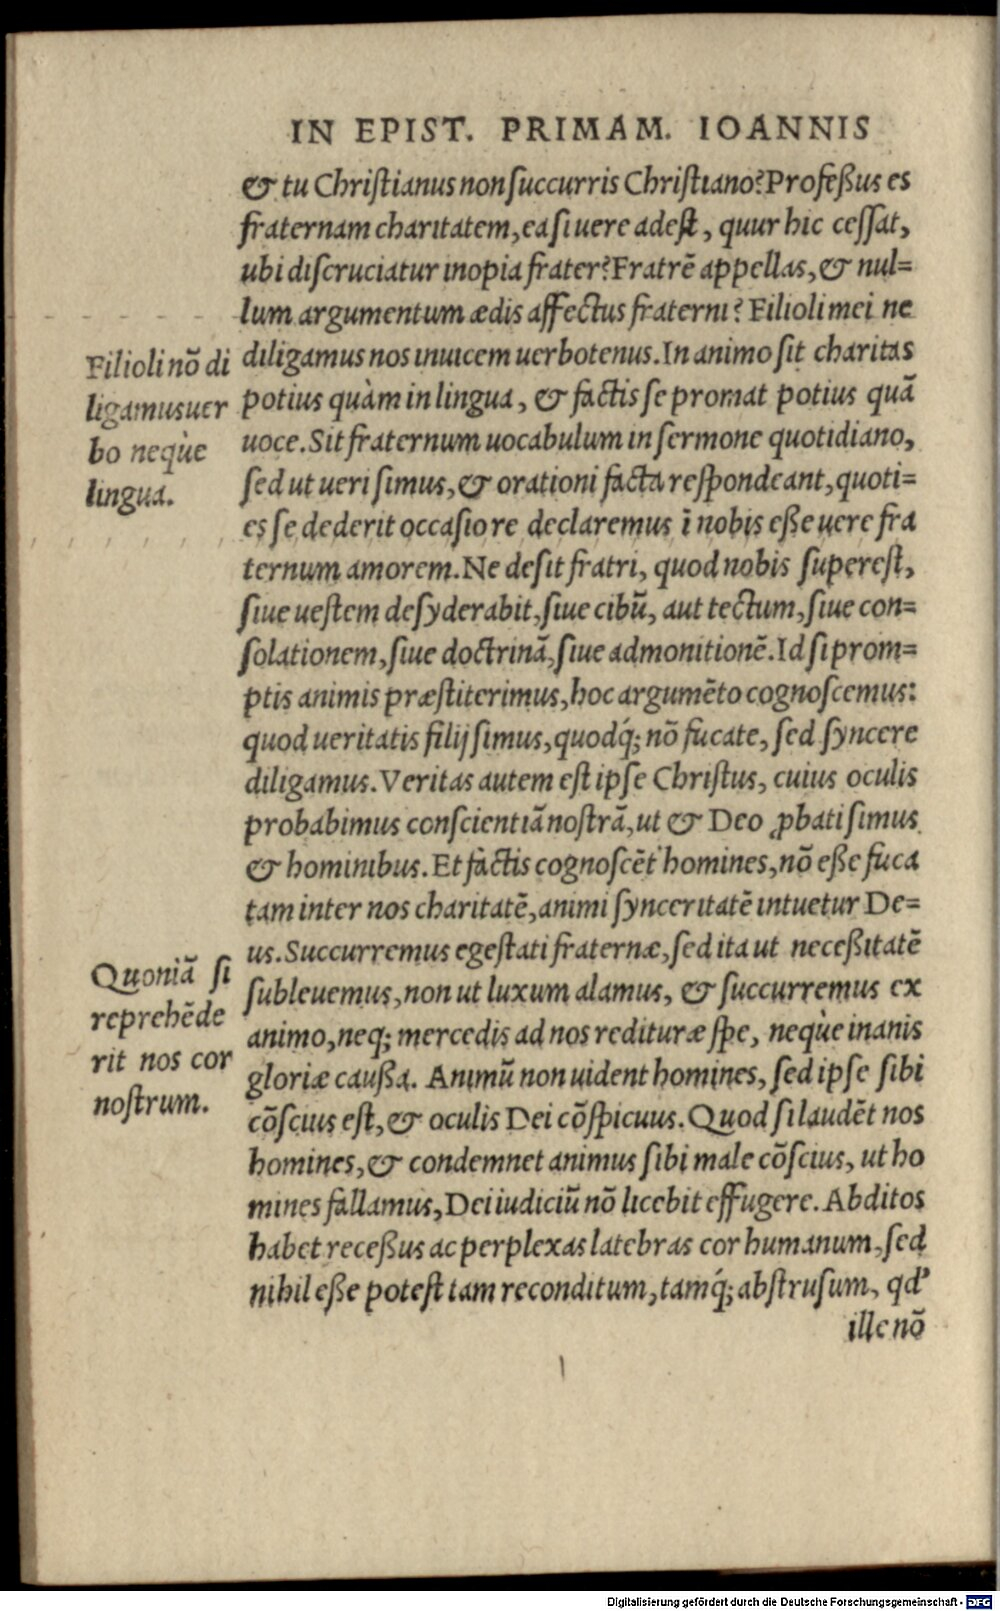 IN EPIST. PRIMAM. IOANNIS
& tu Chriſtianus non ſuccurris Chriſtiano? Profeßus es
fraternam charitatem, ea ſi uere adeſt, quur hic ceſſat,
ubi diſcruciatur inopia frater? Fratrē appellas, & nul=
lum argumentum ædis affectus fraterni? Filioli mei ne
diligamus nos inuicem uerbotenus. In animo ſit charitas
potius quàm in lingua, & factis ſe promat potius quā
uoce. Sit fraternum uocabulum in ſermone quotidiano,
ſed ut ueri ſimus, & orationi facta reſpondeant, quoti=
es ſe dederit occaſio re declaremus ī nobis eße uere fra
ternum amorem. Ne deſit fratri, quod nobis ſupereſt,
ſiue ueſtem deſyderabit, ſiue cibū, aut tectum, ſiue con=
ſolationem, ſiue doctrinā, ſiue admonitionē. Id ſi prom=
ptis animis præſtiterimus, hoc argumēto cognoſcemus:
quod ueritatis filij ſimus, quodq́; nō fucate, ſed ſyncere
diligamus. Veritas autem eſt ipſe Chriſtus, cuius oculis
probabimus conſcientiā noſtrā, ut & Deo ꝓbati ſimus
& hominibus. Et factis cognoſcēt homines, nō eße fuca
tam inter nos charitatē, animi ſynceritatē intuetur De=
us. Succurremus egeſtati fraternæ, ſed ita ut neceßitatē
ſubleuemus, non ut luxum alamus, & ſuccurremus ex
animo, neq; mercedis ad nos redituræ ſpe, neque̓ inanis
gloriæ caußa. Animū non uident homines, ſed ipſe ſibi
cōſcius eſt, & oculis Dei cōſpicuus. Quod ſi laudēt nos
homines, & condemnet animus ſibi male cōſcius, ut ho
mines fallamus, Dei iudiciū nō licebit effugere. Abditos
habet receßus ac perplexas latebras cor humanum, ſed
nihil eße poteſt tam reconditum, tamq́; abſtruſum, qd’
ille nō
Filioli nō di
ligamus uer
bo neque̓
lingua.
Quoniā ſi
reprehēde
rit nos cor
noſtrum.
Digitalisierung gefördert durch die Deutsche Forschungsgemeinschaft - DFG